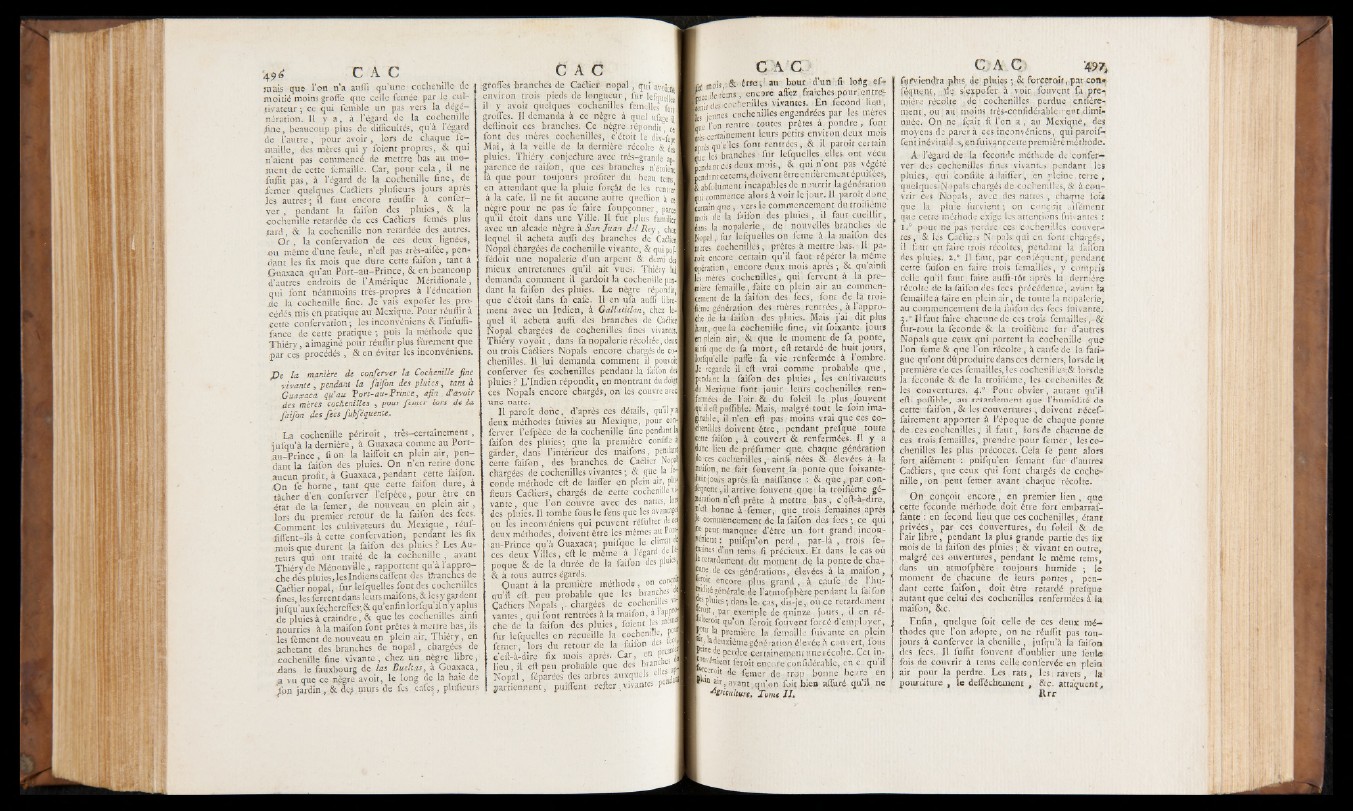 496
C A C
mais que l'on n'a aussi qu'une cochenille de
moitié moins grosse que celle semée par le cul-
tivateur ; ce qui semble un pas vers la dégé-
nération. Il y a, à l'égard de la cochenille
fine, beaucoup plus de difficultés, qu'à l'égard
de l'autre, pour avoir, lors de chaque se-
maille, des mères qui y soient propres, & qui
n'aient pas commencé de mettre bas au mo-
ment de cette semaille. Car, pour cela, il ne
suffit pas, à l'égard de la cochenille fine, de
semer quelques Cactiers plusieurs jours après
les autres ; il faut encore réussir à conser-
ver, pendant la saison des pluies, & la
cochenille retardée de ces Cactiers semés plus
tard, & la cochenille non retardée des autres.
Or, la conservation de ces deux lignées,
ou même d'une seule, n'est pas très-aisée, pen-
dant les six mois que dure cette saison, tant à
Guaxaca qu'au Port-au-Prince, & en beaucoup
d'autres endroits de l'Amérique Méridionale,
qui sont néanmoins très-propres à l'éducation
de la cochenille fine. Je vais exposer les pro-
cédés mis en pratique au Mexique. Pour réussir à
cette conservation ; les inconvéniens & l'insuffi-
sance de cette pratique ; puis la méthode que
Thiéry, a imaginé pour réussir plus sûrement que
par ces procédés, & en éviter les inconvéniens.
De la manière de conserver la Cochenille fine
vivante, pendant la saison des pluies, tant à
Guaxaca qu'au Port-au-Prince, afin d'avoir
des mères cochenilles, pour semer lors de la
saison des secs subséquente.
La cochenille périroit, très-certainement,
jusqu'à la dernière, à Guaxaca comme au Port-
au-Prince, si on la laissoit en plein air, pen-
dant la saison des pluies. On n'en retire donc
aucun profit, à Guaxaca, pendant cette saison.
On se borne, tant que cette saison dure, à
tâcher d'en conserver l'espèce, pour être en
état de la semer, de nouveau en plein air,
lors du premier retour de la saison des secs.
Comment les cultivateurs du Mexique, réus-
sissent-ils à cette conservation, pendant les six
mois que durent la saison des pluies ? Les Au-
teurs qui ont traité de la cochenille, avant
Thiéry de Ménonville, rapportent qu'à l'appro-
che des pluies, les Indiens cassent des branches de
Cactier nopal, sur lesquelles sont des cochenilles
fines, les serrent dans leurs maisons, & les y gardent
jusqu'aux sécheresses ; & qu'enfin lorsqu'il n'y a plus
de pluies à craindre, & que les cochenilles ainsi
nourries à la maison sont prêtes à mettre bas, ils
les sèment de nouveau en plein air. Thiéry, en
achetant des branches de nopal, chargées de
cochenille fine vivante, chez un nègre libre,
dans le fauxbourg de las Buekas, à Guaxaca,
a vu que ce nègre avoit, le long de la haie de
son jardin, & des murs de ses cases, plusieurs
C A C
grosses branches de Cactier nopal, qui avoient
environ trois pieds de longueur, sur lesquelles
il y avoit quelques cochenilles femelles fort
grosses. Il demanda à ce nègre à quel usage il
destinoit ces branches. Ce nègre répondit, ce
sont des mères cochenilles, c'étoit le dix-sept
Mai, à la veille de la dernière récolte & des
pluies. Thiéry conjecture avec très-grande ap-
parence de raison, que ces branches n'étoient
là que pour toujours profiter du beau tems,
en attendant que la pluie forçât de les rentrer
à la case. Il ne fit aucune autre question à ce
nègre pour ne pas se faire soupçonner, parce
qu'il étoit dans une Ville. Il fut plus familier
avec un alcade nègre à San Juan del Rey, chez
lequel il acheta aussi des branches de Cactier
Nopal chargées de cochenille vivante, & qui pos-
sédoit une nopalerie d'un arpent & demi des
mieux entretenues qu'il ait vues. Thiéry lui
demanda comment il gardoit la cochenille pen-
dant la saison des pluies. Le nègre répondit,
que c'étoit dans sa case. Il en usa aussi libre-
ment avec un Indien, à Gallatitlan, chez le-
quel il acheta aussi des branches de Cactier
Nopal chargées de cochenilles fines vivantes.
Thiéry voyoit, dans sa nopalerie récoltée, deux
ou trois Cactiers Nopals encore chargés de co-
chenilles. Il lui demanda comment il pouvoit
conserver ses cochenilles pendant la saison des
pluies ? L'Indien répondit, en montrant du doigt
ces Nopals encore chargés, on les couvre avec
une natte.
Il paroît donc, d'après ces détails, qu'il y a
deux méthodes suivies au Mexique, pour con-
server l'espèce de la cochenille fine pendant la
saison des pluies ; que la première consiste à
garder, dans l'intérieur des maisons, pendant
cette saison, des branches de Cactier Nopal
chargées de cochenilles vivantes ; & que la se-
conde méthode est de laisser en plein air, plu-
sieurs Cactiers, chargés de cette cochenille vi-
vante, que l'on couvre avec des nattes, lors
des pluies. Il tombe sous le sens que les avantages
ou les inconvéniens qui peuvent résulter de ces
deux méthodes, doivent être les mêmes au Port-
au-Prince qu'à Guaxaca ; puisque le climat de
ces deux Villes, est le même à l'égard de l'é-
poque & de la durée de la saison des pluies,
& à tous autres égards.
Quant à la première méthode, on conçoit
qu'il est peu probable que les branches de
Cactiers Nopals, chargées de cochenilles vi-
vantes, qui sont rentrées à la maison, à l'appro-
che de la saison des pluies, soient les mêmes
sur lesquelles on recueille la cochenille, pour
semer, lors du retour de la saison des secs,
c'est-à-dire six mois après. Car, en premier
lieu, il est peu probable que des branches de
Nopal, séparées des arbres auxquels elles ap-
partiennent, puissent rester vivantes pendant
C A C
six mois, & être, au bout d'un si long es-
pace de tems, encore assez fraîches pour entre-
tenir des cochenilles vivantes. En second lieu,
les jeunes cochenilles engendrées par les mères
que l'on rentre toutes prêtes à pondre, font
très-certainement leurs petits environ deux mois
après qu'elles sont rentrées, & il paroît certain
que les branches sur lesquelles elles ont vécu
pendant ces deux mois, & qui n'ont pas végété
pendant ce tems, doivent être entièrement épuisées,
& absolument incapables de nourrir la génération
qui commence alors à voir le jour. Il paroît donc
certain que, vers le commencement du troisième
mois de la saison des pluies, il faut cueillir,
dans la nopalerie, de nouvelles branches de
Nopal, sur lesquelles on seme à la maison des
mères cochenilles, prêtes à mettre bas. Il pa-
roît encore certain qu'il faut répéter la même
opération, encore deux mois après ; & qu'ainsi
les mères cochenilles, qui servent à la pre-
mière semaille, faite en plein air au commen-
cement de la saison des secs, sont de la troi-
sième génération des mères rentrées, à l'appro-
che de la saison des pluies. Mais j'ai dit plus
haut, que la cochenille fine, vit soixante jours
en plein air, & que le moment de sa ponte,
ainsi que de sa mort, est retardé de huit jours,
lorsqu'elle passe sa vie renfermée à l'ombre.
Je regarde il est vrai comme probable que,
pendant la saison des pluies, les cultivateurs
du Mexique font jouir leurs cochenilles ren-
fermées de l'air & du soleil le plus souvent
qu'il est possible. Mais, malgré tout le soin ima-
ginable, il n'en est pas moins vrai que ces co-
chenilles doivent être, pendant presque toute
cette saison, à couvert & renfermées. Il y a
donc lieu de présumer que, chaque génération
de ces cochenilles, ainsi nées & élevées à la
maison, ne fait souvent sa ponte que soixante-
huit jours après sa naissance : & que, par con-
séquent, il arrive souvent que la troisième gé-
nération n'est prête à mettre bas, c'est-à-dire,
n'est bonne à semer, que trois semaines après
le commencement de la saison des secs ; ce qui
ne peut manquer d'être un fort grand incon-
vénient : puisqu'on perd, par-là, trois se-
maines d'un tems si précieux. Et dans le cas où
le retardement du moment de la ponte de cha-
cune de ces générations, élevées à la maison,
seroit encore plus grand, à cause de l'hu-
midité générale de l'atmosphère pendant la saison
des pluies ; dans le cas, dis-je, où ce retardement
seroit, par exemple de quinze jours, il en ré-
sulteroit qu'on seroit souvent forcé d'employer,
pour la première, la semaille suivante en plein
air, la deuxième génération élevée à couvert, sous
peine de perdre certainement une récolte. Cet in-
convénient seroit encore considérable, en ce qu'il
forceroit de semer de trop bonne heure en
plein air, avant qu'on soit bien assuré qu'il ne
Agriculture. Tome II.
C A C
497
surviendra plus de pluies ; & forceroit, par con-
séquent, de s'exposer à voir souvent sa pre-
mière récolte de cochenilles perdue entière-
ment, ou au moins très-considérablement dimi-
nuée. On ne sçait si l'on a, au Mexique, des
moyens de parer à ces inconvéniens, qui parois-
sent inévitables, en suivant cette première méthode.
A l'égard de la seconde méthode de conser-
ver des cochenilles fines vivantes pendant les
pluies, qui consiste à laisser, en pleine terre,
quelques Nopals chargés de cochenilles, & à cou-
vrir ces Nopals, avec des nattes, chaque fois
que la pluie survient ; on conçoit aisément
que cette méthode exige les attentions suivantes :
1.° pour ne pas perdre ces cochenilles couver-
tes, & les Cactiers Nopals qui en sont chargés,
il faut en faire trois récoltes, pendant la saison
des pluies. 2.° Il faut, par conséquent, pendant
cette saison en faire trois semailles, y compris
celle qu'il faut faire aussi-tôt après la dernière
récolte de la saison des secs précédente, avant la
semaille à faire en plein air, de toute la nopalerie,
au commencement de la saison des secs suivante.
3.° Il faut faire chacune de ces trois semailles, &
sur-tout la seconde & la troisième sur d'autres
Nopals que ceux qui portent la cochenille que
l'on seme & que l'on récolte, à cause de la fati-
gue qu'ont dû produire dans ces derniers, lors de la
première de ces semailles, les cochenilles & lors de
la seconde & de la troisième, les cochenilles &
les couvertures. 4.° Pour obvier, autant qu'il
est possible, au retardement que l'humidité de
cette saison, & les couvertures, doivent néces-
sairement apporter à l'époque de chaque ponte
de ces cochenilles, il faut, lors de chacune de
ces trois semailles, prendre pour semer, les co-
chenilles les plus précoces. Cela se peut alors
fort aisément : puisqu'en semant sur d'autres
Cactiers, que ceux qui sont chargés de coche-
nille, on peut semer avant chaque récolte.
On conçoit encore, en premier lieu, que
cette seconde méthode doit être fort embarras-
sante : en second lieu que ces cochenilles, étant
privées, par ces couvertures, du soleil & de
l'air libre, pendant la plus grande partie des six
mois de la saison des pluies ; & vivant en outre,
malgré ces ouvertures, pendant le même tems,
dans un atmosphère toujours humide ; le
moment de chacune de leurs pontes, pen-
dant cette saison, doit être retardé presque
autant que celui des cochenilles renfermées à la
maison, &c.
Enfin, quelque soit celle de ces deux mé-
thodes que l'on adopte, on ne réussit pas tou-
jours à conserver la chenille, jusqu'à la saison
des secs. Il suffit souvent d'oublier une seule
fois de couvrir à tems celle conservée en plein
air pour la perdre. Les rats, les ravets, la
pourriture, le dessèchement, &c. attaquent,
Rrr